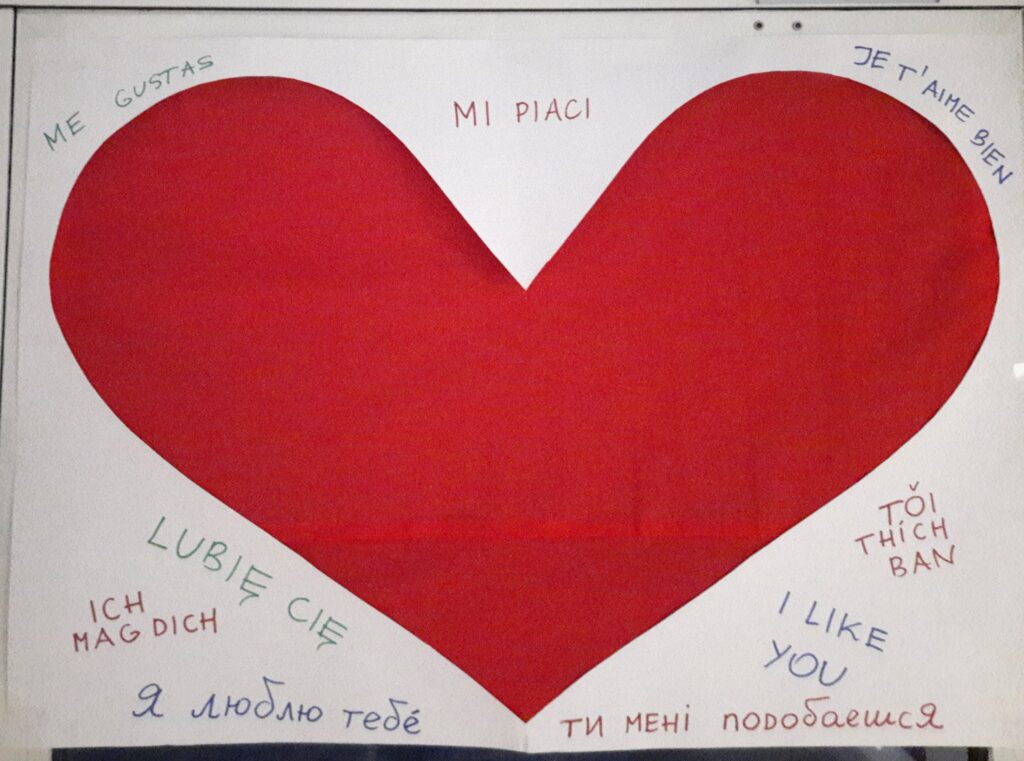 ME GUSTAS
MI PIACI
JE T'AIME BIEN
TǑI
THÍCH
BAN
LUBIĘ CIĘ
ICH
MAG DICH
I LIKE
YOU
Я люблю тебé
ТИ МЕНІ подобаєшся